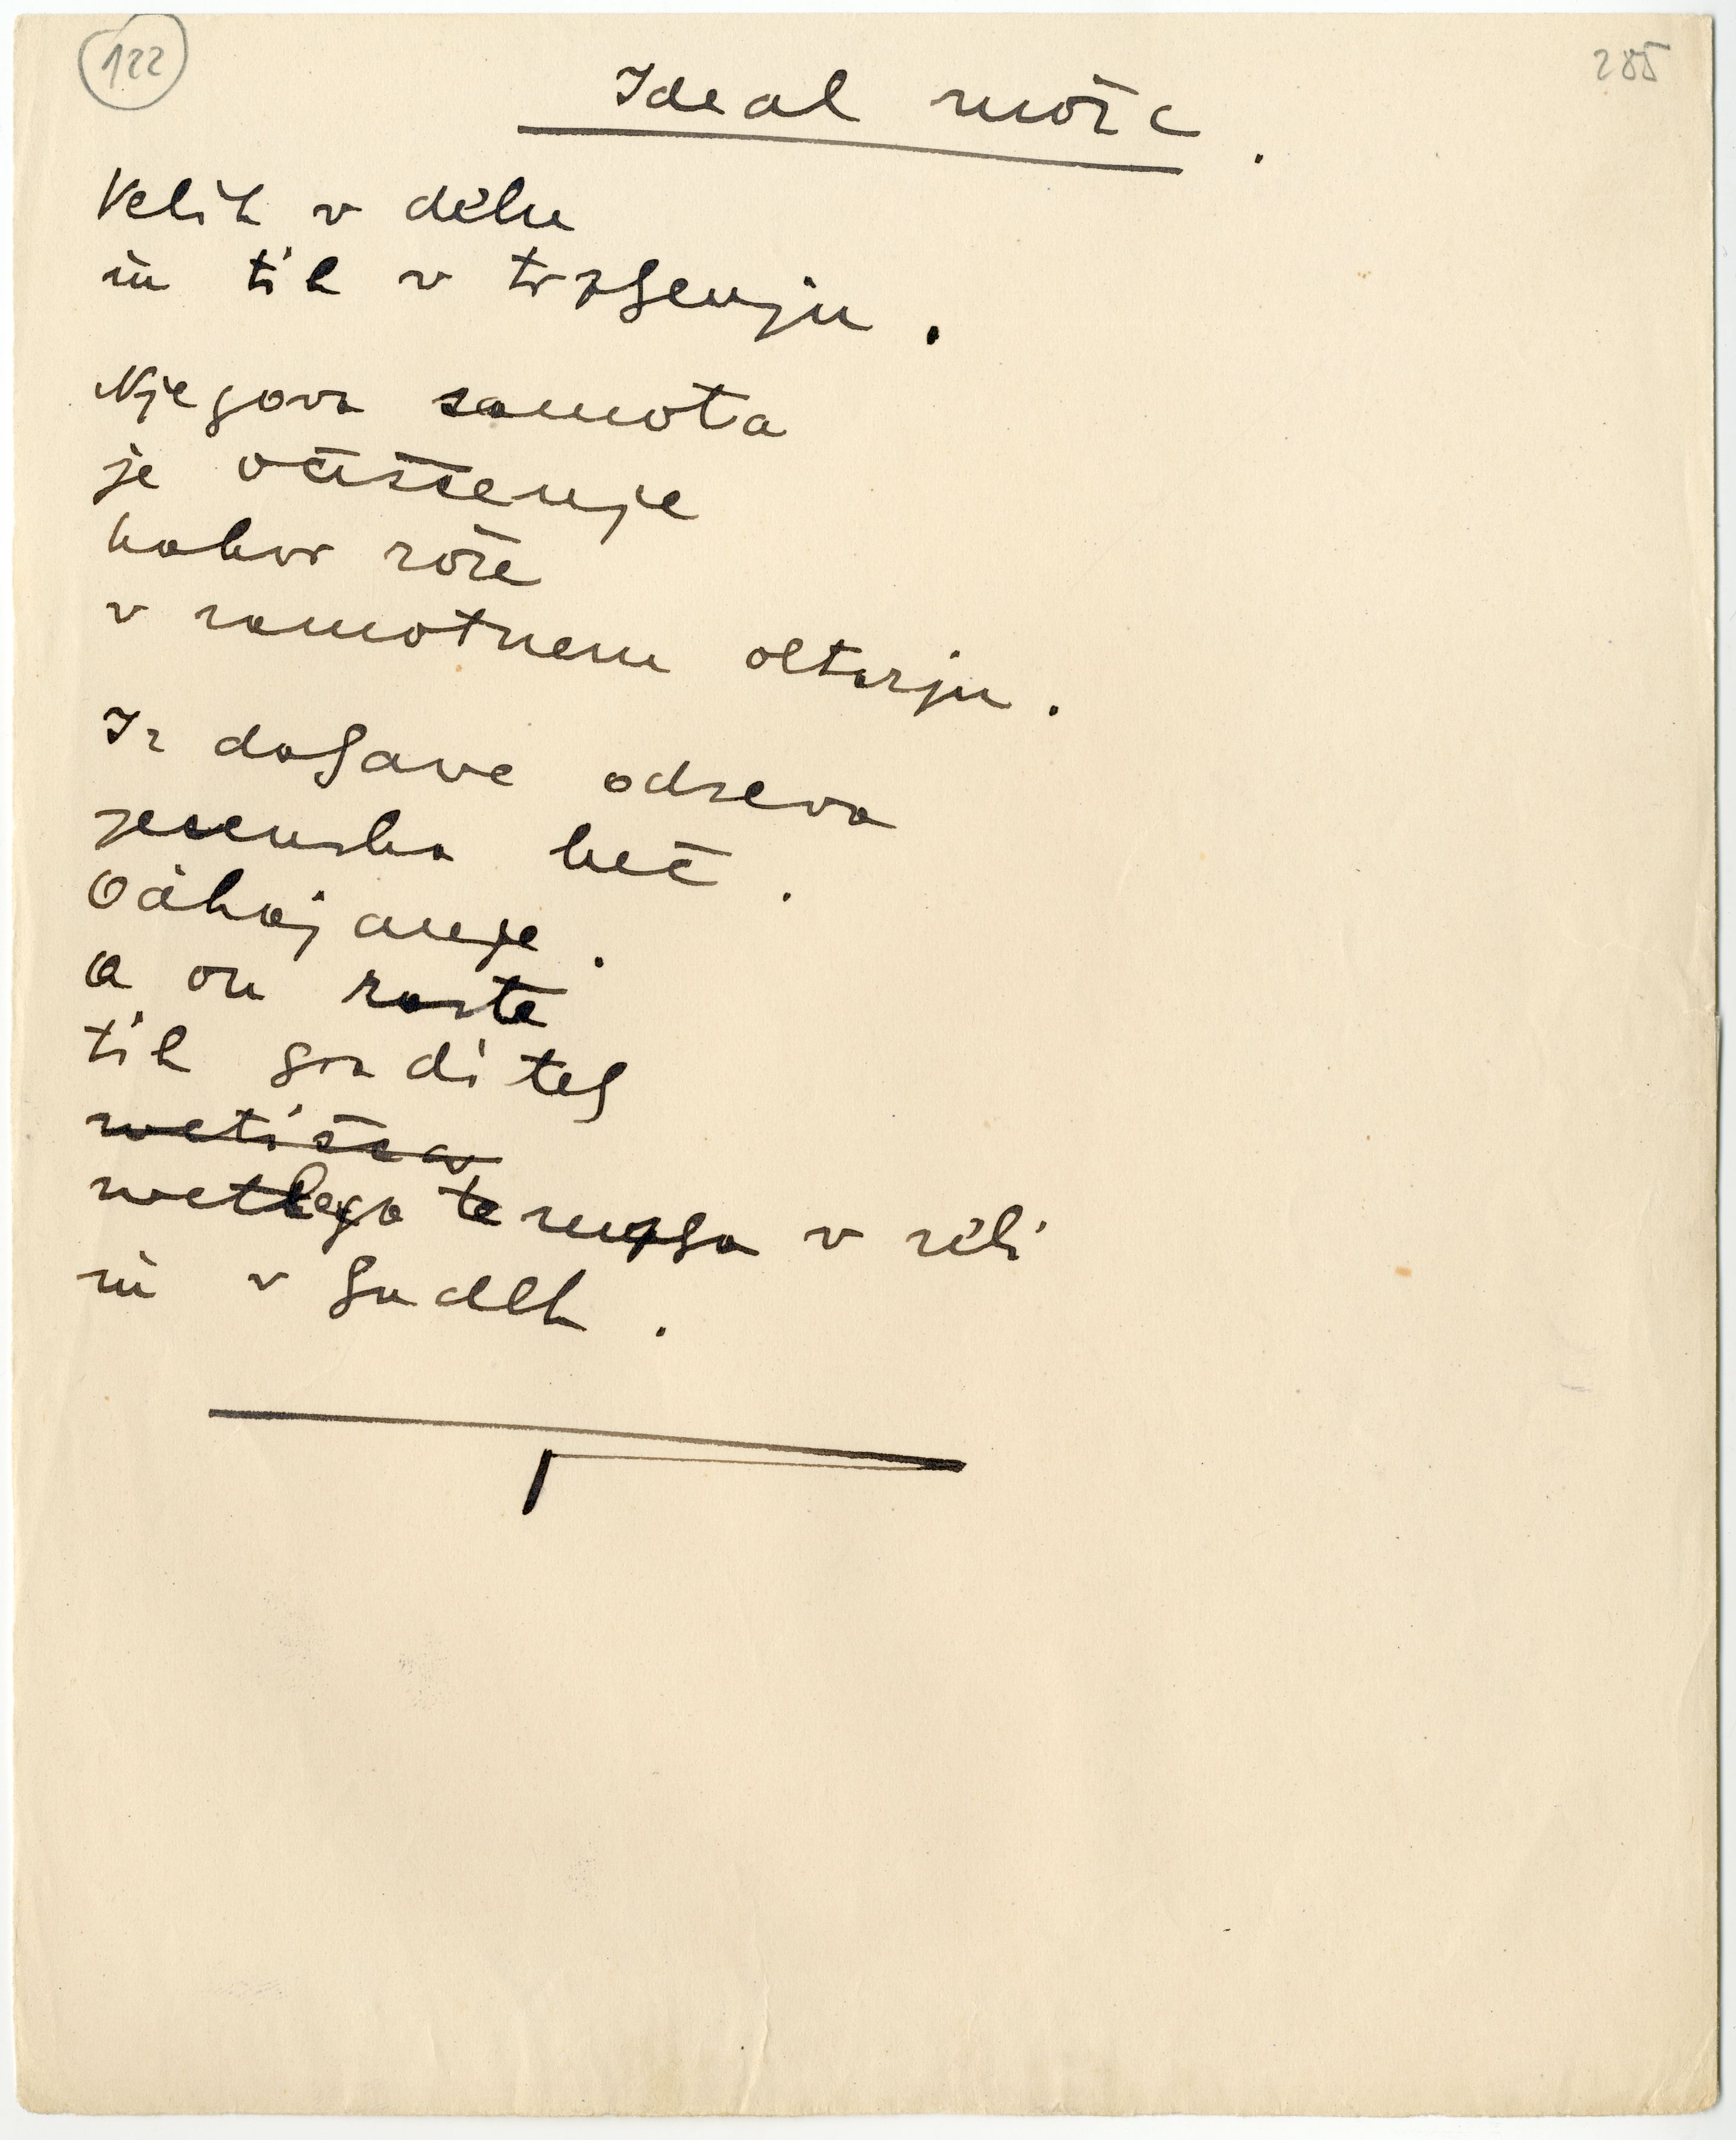 122
285
Ideal moža.
Velik v delu
in tih v trpljenju.
Njegova samota
je očiščenje
kakor rože
v samotnem oltarju.
Iz daljave odseva
jesenska luč.
Odhajanje.
A on raste
tih graditelj
svetišča
svetlega templja v sebi
in v ljudeh.